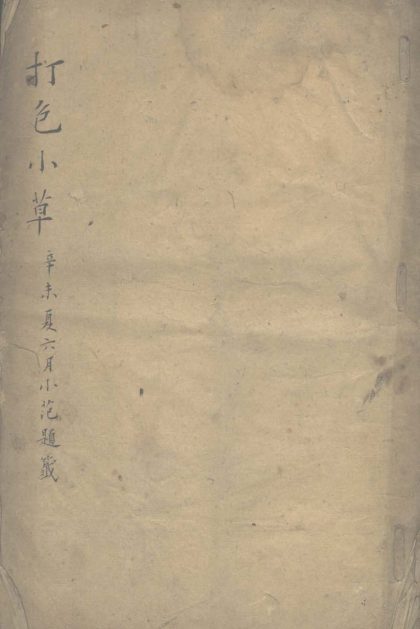 打色小草
辛未夏六月小范題籤